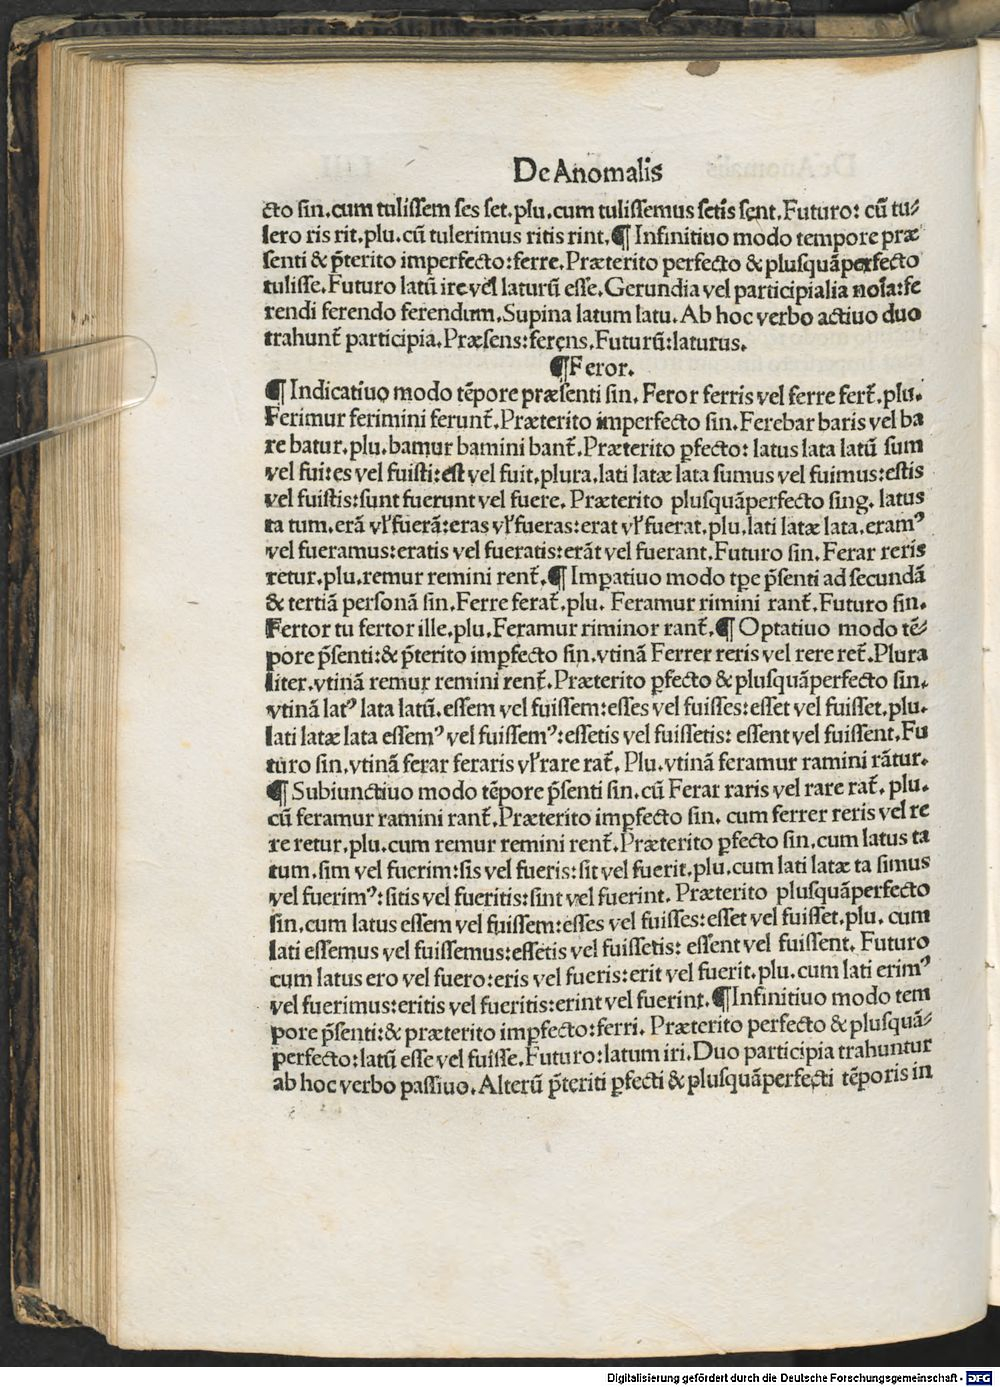 De Anomalis
cto ſin.cum tuliſſem ſes ſet.plu.cum tuliſſemus ſetis ſent.Futuro: cū tu⸗
lero ris rit.plu.cū tulerimus ritis rint.¶ Infinitiuo modo tempore præ
ſenti & p̄terito imperfecto:ferre.Præterito perfecto & pluſquāperfecto
tuliſſe.Futuro latū ire vel laturū eſſe.Gerundia vel participialia noīa:fe
rendi ferendo ferendum.Supina latum latu.Ab hoc verbo actiuo duo
trahunt̄ participia.Præſens:ferens.Futurū:laturus.
¶Feror.
¶ Indicatiuo modo tēpore præſenti ſin. Feror ferris vel ferre fert̄.plu.
Ferimur ferimini ferunt̄.Præterito imperfecto ſin.Ferebar baris vel ba
re batur.plu.bamur bamini bant̄.Præterito ꝑfecto: latus lata latū ſum
vel fui:es vel fuiſti:eſt vel fuit.plura.lati latæ lata ſumus vel fuimus:eſtis
vel fuiſtis:ſunt fuerunt vel fuere. Præterito pluſquāperfecto ſing. latus
ta tum.erā vl̓ fuerā:eras vl̓ fueras:erat vl̓ fuerat.plu.lati latæ lata.eramꝰ
vel fueramus:eratis vel fueratis:erāt vel fuerant.Futuro ſin. Ferar reris
retur.plu.remur remini rent̄.¶ Imꝑatiuo modo tꝑe p̄ſenti ad ſecundā
& tertiā perſonā ſin.Ferre ferat̄.plu. Feramur rimini rant̄.Futuro ſin.
Fertor tu fertor ille.plu.Feramur riminor rant̄.¶ Optatiuo modo tē⸗
pore p̄ſenti:& p̄terito imꝑfecto ſin.vtinā Ferrer reris vel rere ret̄.Plura
liter.vtinā remur remini rent̄.Præterito ꝑfecto & pluſquāperfecto ſin.
vtinā latꝰ lata latū.eſſem vel fuiſſem:eſſes vel fuiſſes:eſſet vel fuiſſet.plu.
lati latæ lata eſſemꝰ vel fuiſſemꝰ:eſſetis vel fuiſſetis: eſſent vel fuiſſent.Fu
turo ſin.vtinā ferar feraris vl̓ rare rat̄. Plu.vtinā feramur ramini rātur.
¶ Subiunctiuo modo tēpore p̄ſenti ſin.cū Ferar raris vel rare rat̄. plu.
cū feramur ramini rant̄.Præterito imꝑfecto ſin. cum ferrer reris vel re
re retur.plu.cum remur remini rent̄.Præterito ꝑfecto ſin.cum latus ta
tum.ſim vel fuerim:ſis vel fueris:ſit vel fuerit.plu.cum lati latæ ta ſimus
vel fuerimꝰ:ſitis vel fueritis:ſint vel fuerint. Præterito pluſquāperfecto
ſin.cum latus eſſem vel fuiſſem:eſſes vel fuiſſes:eſſet vel fuiſſet.plu. cum
lati eſſemus vel fuiſſemus:eſſetis vel fuiſſetis: eſſent vel fuiſſent. Futuro
cum latus ero vel fuero:eris vel fueris:erit vel fuerit.plu.cum lati erimꝰ
vel fuerimus:eritis vel fueritis:erint vel fuerint.¶Infinitiuo modo tem
pore p̄ſenti:& præterito imꝑfecto:ferri. Præterito perfecto & pluſquā⸗
perfecto:latū eſſe vel fuiſſe.Futuro:latum iri.Duo participia trahuntur
ab hoc verbo paſſiuo.Alterū p̄teriti ꝑfecti & pluſquāperfecti tēporis in
Digitalisierung gefördert durch die Deutsche Forschungsgemeinschaft - DFG